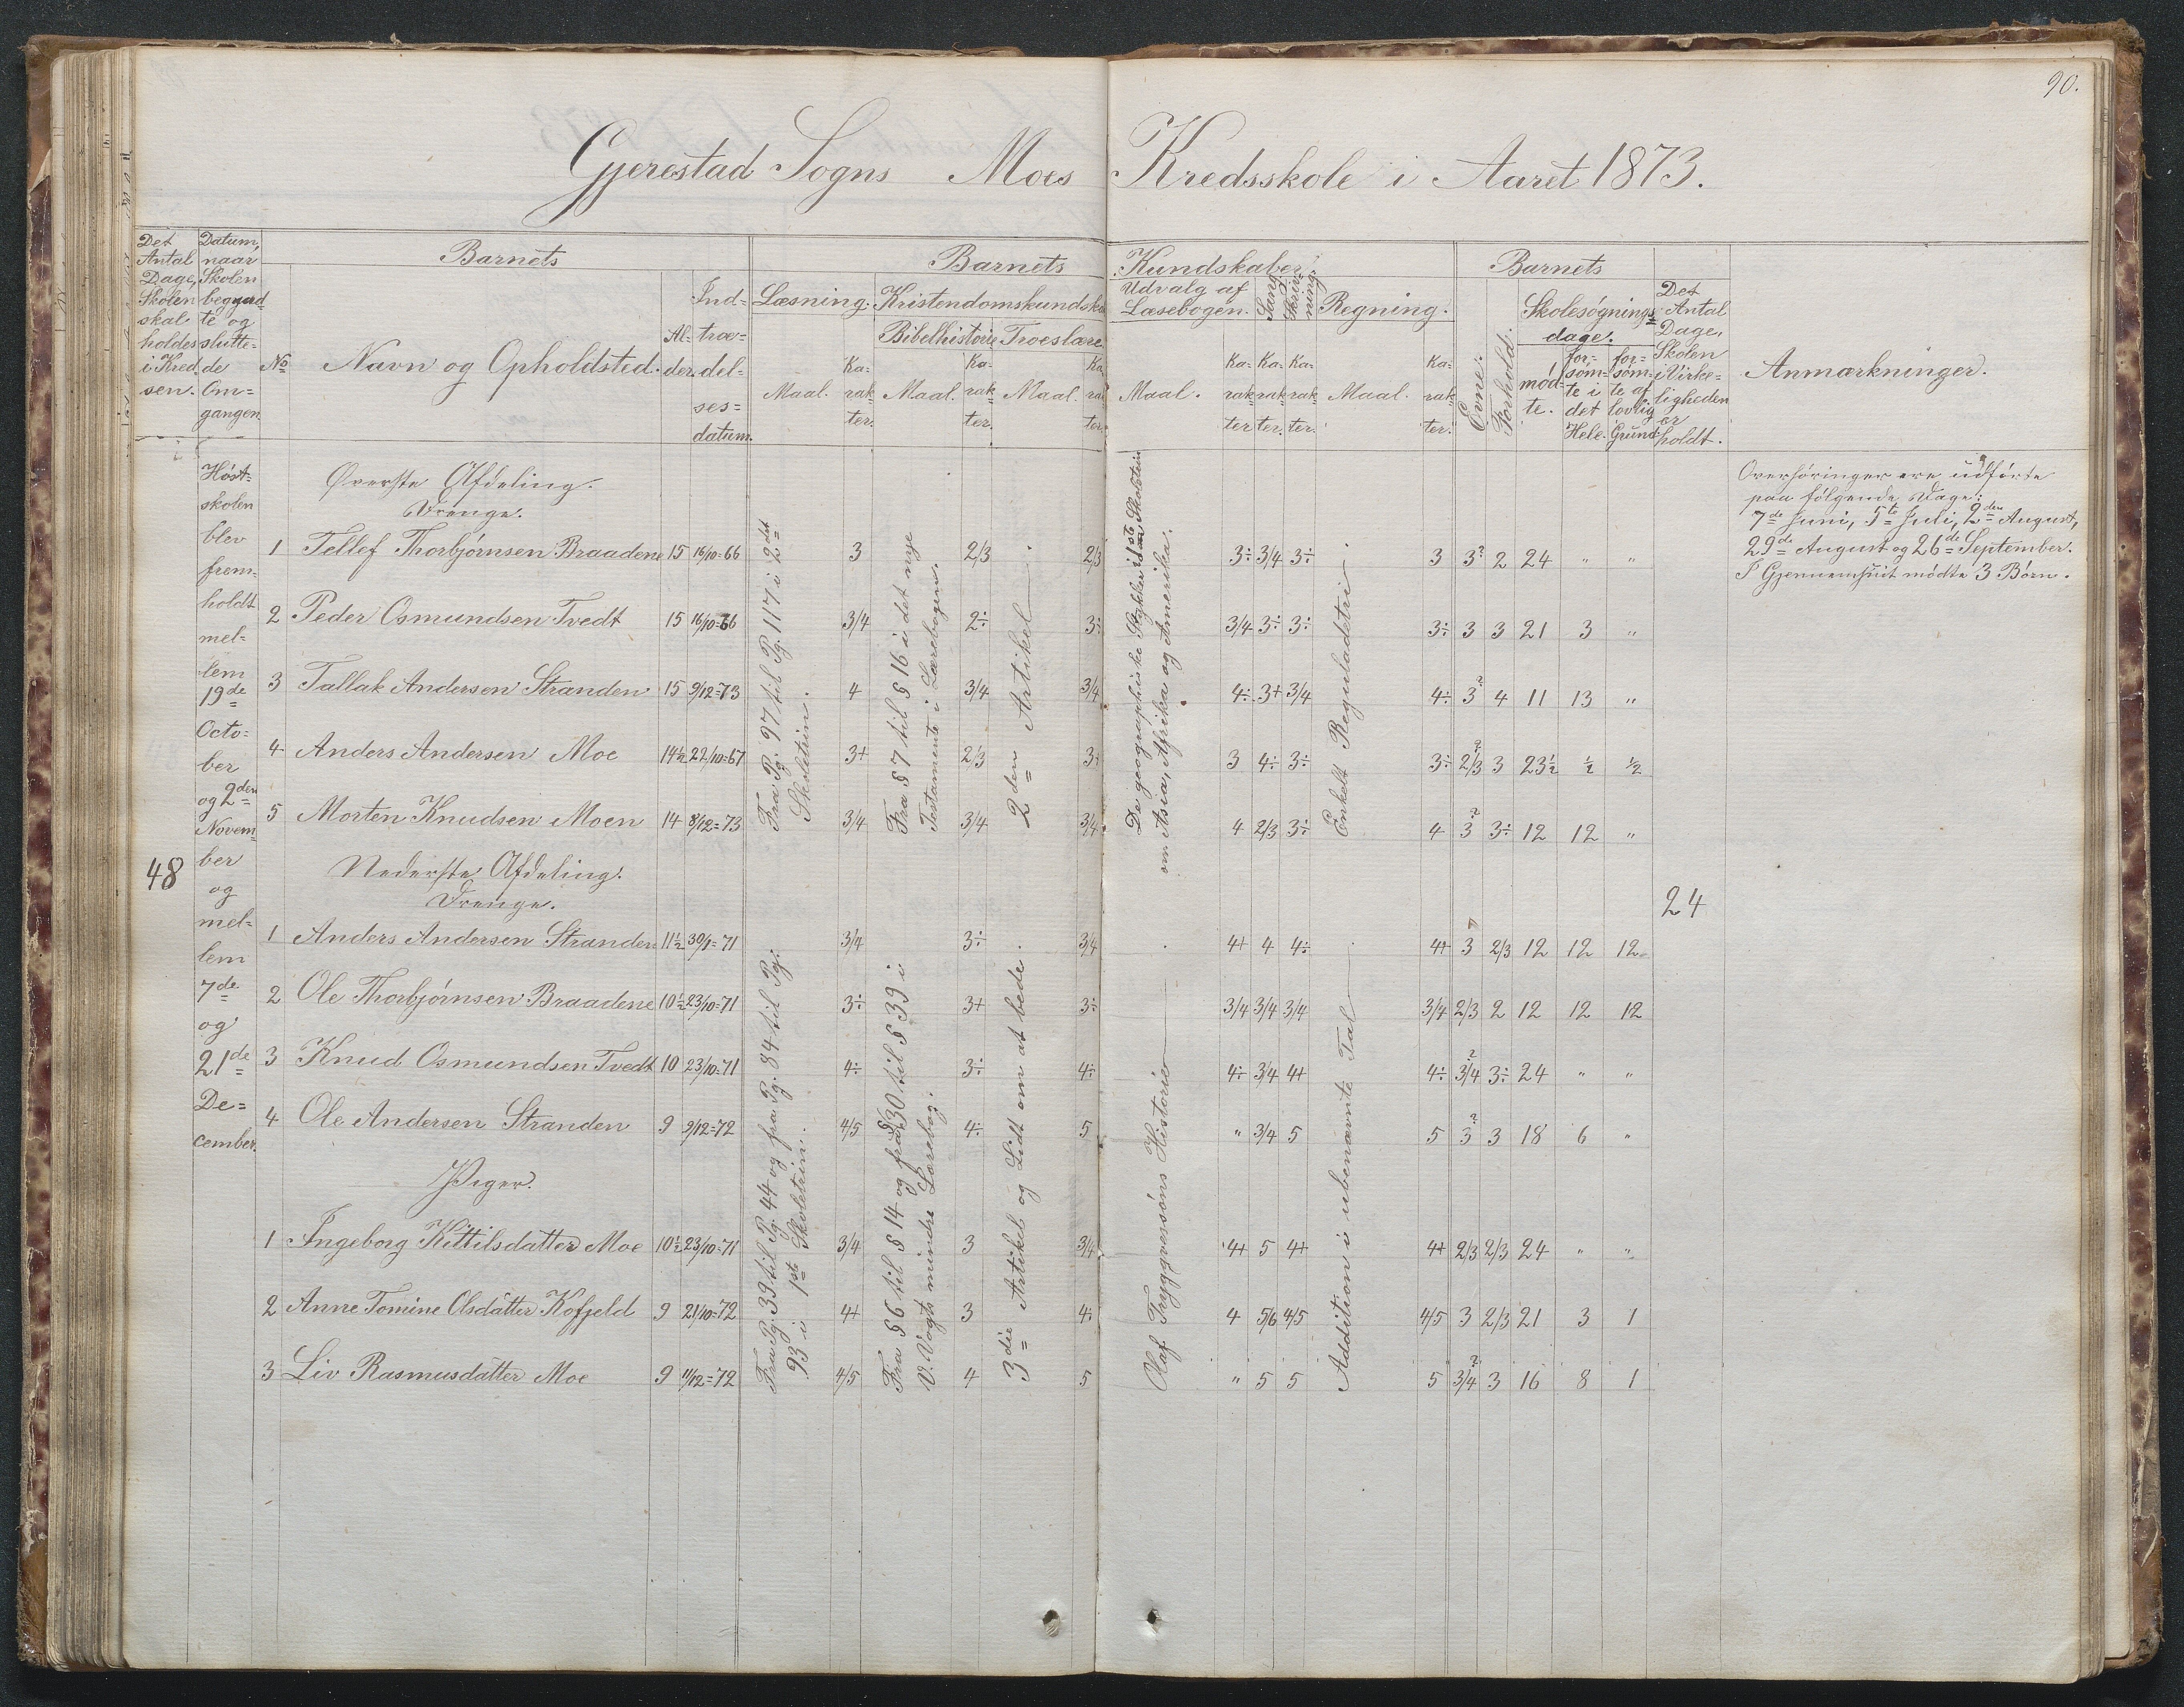 90.
Gjerestad Sogns Moes Kredsskole i Aaret 1873.
Det Antal Dage, Skolen skal holdes i Kredsen.
Datum, naar Skolen begyndte og sluttede Omgangen.
Barnets
No
Navn og Opholdsted.
Alder.
Indtrædelsesdatum.
Barnets Kundskaber.
Læsning.
Maal. Karakter.
Kristendomskundska
Bibelhistorie
Maal. Karakter.
Troeslære
Maal. Karakter.
Udvalg af Læsebogen.
Maal. Karakter
Sang. Karakter.
Skrivning. Karakter.
Regning.
Maal. Karakter.
Barnets
Evne.
Forhold.
Skolesøgningsdage.
mødte.
forsømte i det Hele.
forsømte af lovlig Grund.
Det Antal Dage, Skolen i Virkeligheden er holdt.
Anmærkninger.
48
Høstskolen blev fremholdt mellem 19de Octo=
ber og 2den November og mellem 7de og 21de December.
Øverste Afdeling.
Drenge.
1 Tellef Thorbjørnsen Braadene 15 16/10=66 3 2/3 2/3 3÷ 3/4 3÷ 3 3? 2 24 " "
2 Peder Osmundsen Tvedt 15 16/10=66 3/4 2÷ 3÷ 3/4 3÷ 3÷ 3÷ 3 3 21 3 "
3 Tallak Andersen Stranden 15 9/12=73 4 3/4 3/4 4÷ 3+ 3/4 4÷ 3? 4 11 13 "
4 Anders Andersen Moe 14½ 22/10=67 3+ 2/3 3+ 3 4÷ 3÷ 3÷ 2/3? 3 23½ ½ ½
5 Morten Knudsen Moen 14 8/12=73 3/4 3/4 3/4 4 2/3 3÷ 4 3? 3÷ 12 12 "
Fra Pg. 97 til Pg. 117 i 2det Skoletrin.
Fra § 7 til § 16 i det nye Testamente i Lærebogen.
2den Artikel
De geographiske Stykker i 1ste Skoletrin
om Asia, Afrika og Amerika.
Enkelt Reguladetri
Nederste Afdeling.
Drenge.
24
1 Anders Andersen Stranden 11½ 30/1=71 3/4 3÷ 3/4 4+ 4 4÷ 4+ 3? 2/3 12 12 12
2 Ole Thorbjørnsen Braadene 10½ 23/10=71 3÷ 3+ 3÷ 3/4 3/4 3/4 3/4 2/3 2 12 12 12
3 Knud Osmundsen Tvedt 10 23/10=71 4÷ 3÷ 4÷ 4÷ 3/4 4+ 4÷ 3/4? 3÷ 24 " "
4 Ole Andersen Stranden 9 9/12=72 4/5 4÷ 5 " 3/4 5 5 3? 3 18 6 "
Piger.
1 Ingeborg Kittilsdatter Moe 10½ 23/10=71 3/4 3 3/4 4+ 5 4+ 4+ 2/3 2/3 24 " "
2 Anne Tomine Olsdatter Kofjeld 9 21/10=72 4+ 3 4÷ 4 5/6 4/5 4/5 3 2/3 21 3 1
3 Liv Rasmusdatter Moe 9 11/12=72 4/5 4 5 " 5 5 5 3/4? 3 16 8 1
Fra Pg. 39 til Pg. 44 og fra Pg. 84 til Pg.
93 i 1ste Skoletrin.
Fra § 6 til § 14 og fra § 30 til § 39 i
V. Vogts mindre Lærebog.
3die Artikel og Lidt om at bede.
Olaf Tryggvesøns Historie
Addition i ubenævnte Tal
Overhøringer ere udførte
paa følgende Dage:
7de Juni, 5te Juli, 2den August,
29de August og 26de September.
I Gjennemsnit mødte 3 Børn.